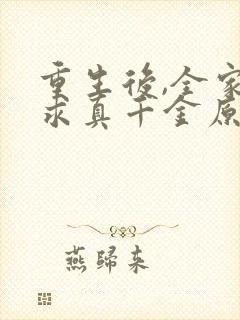 重生後,全家
求真千金原
燕歸來